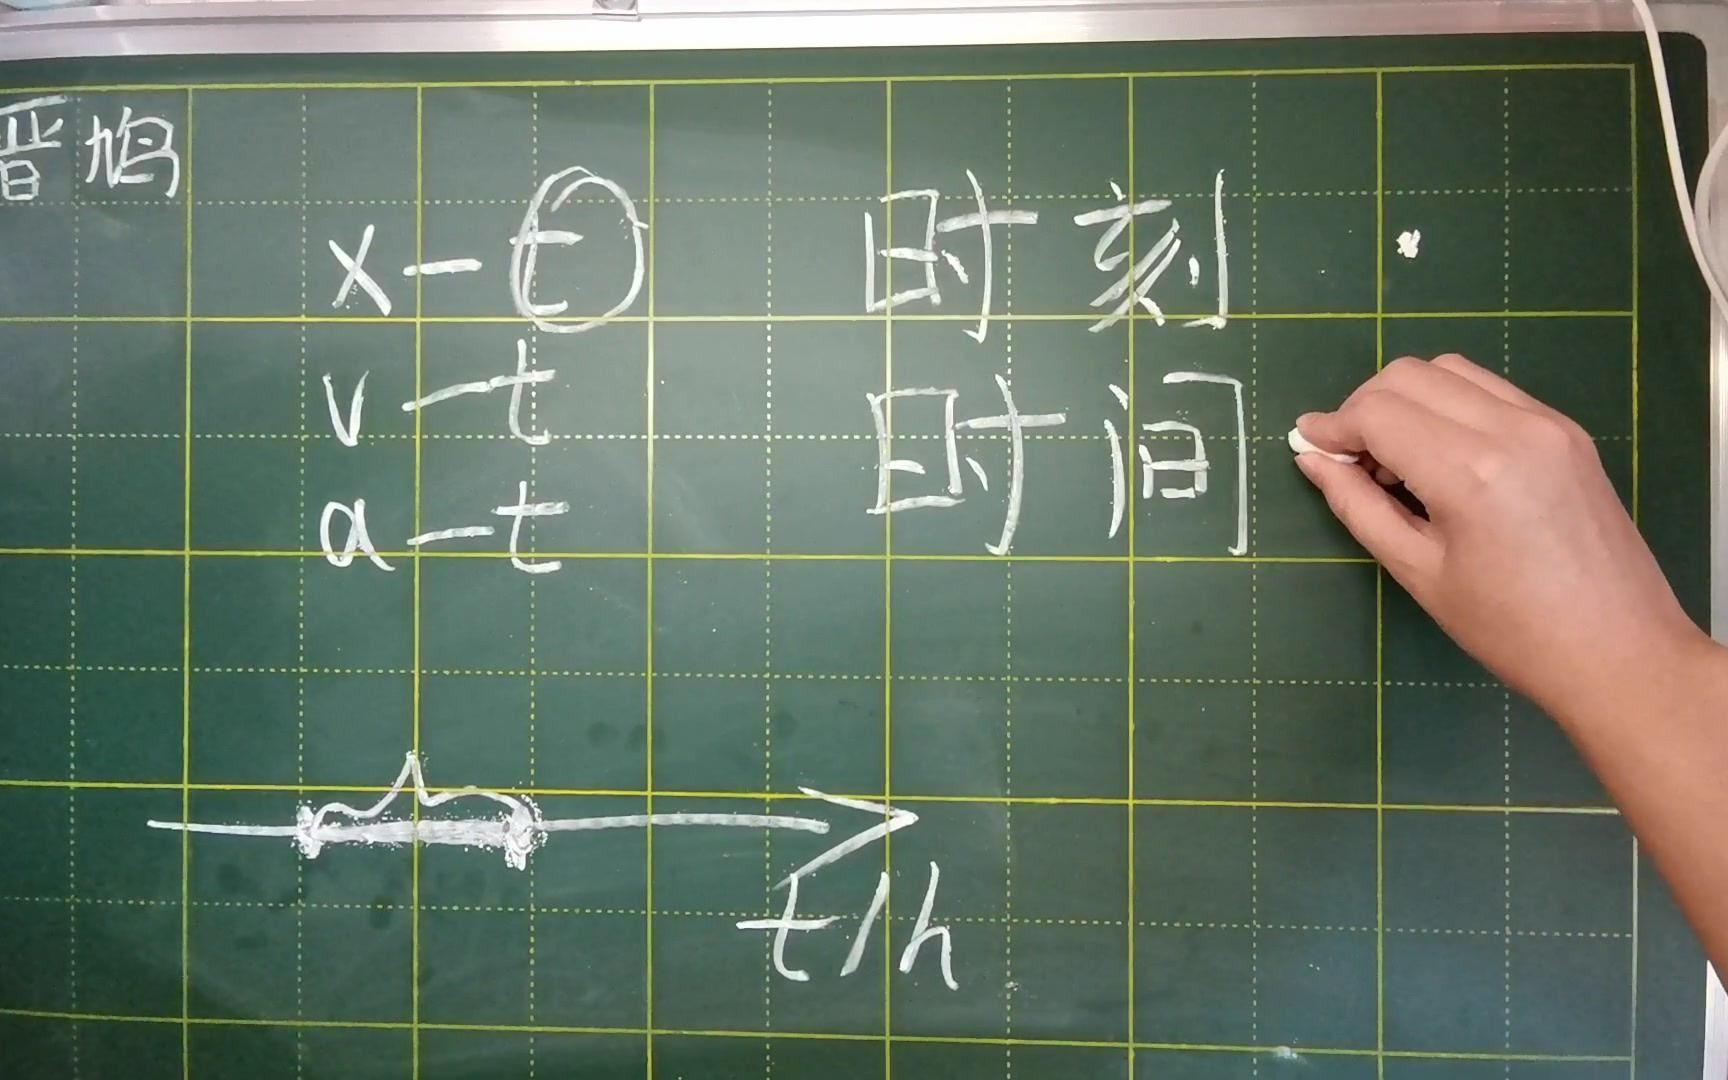 晋鸠
x-t 时刻
v-t 时间
a-t
t/h